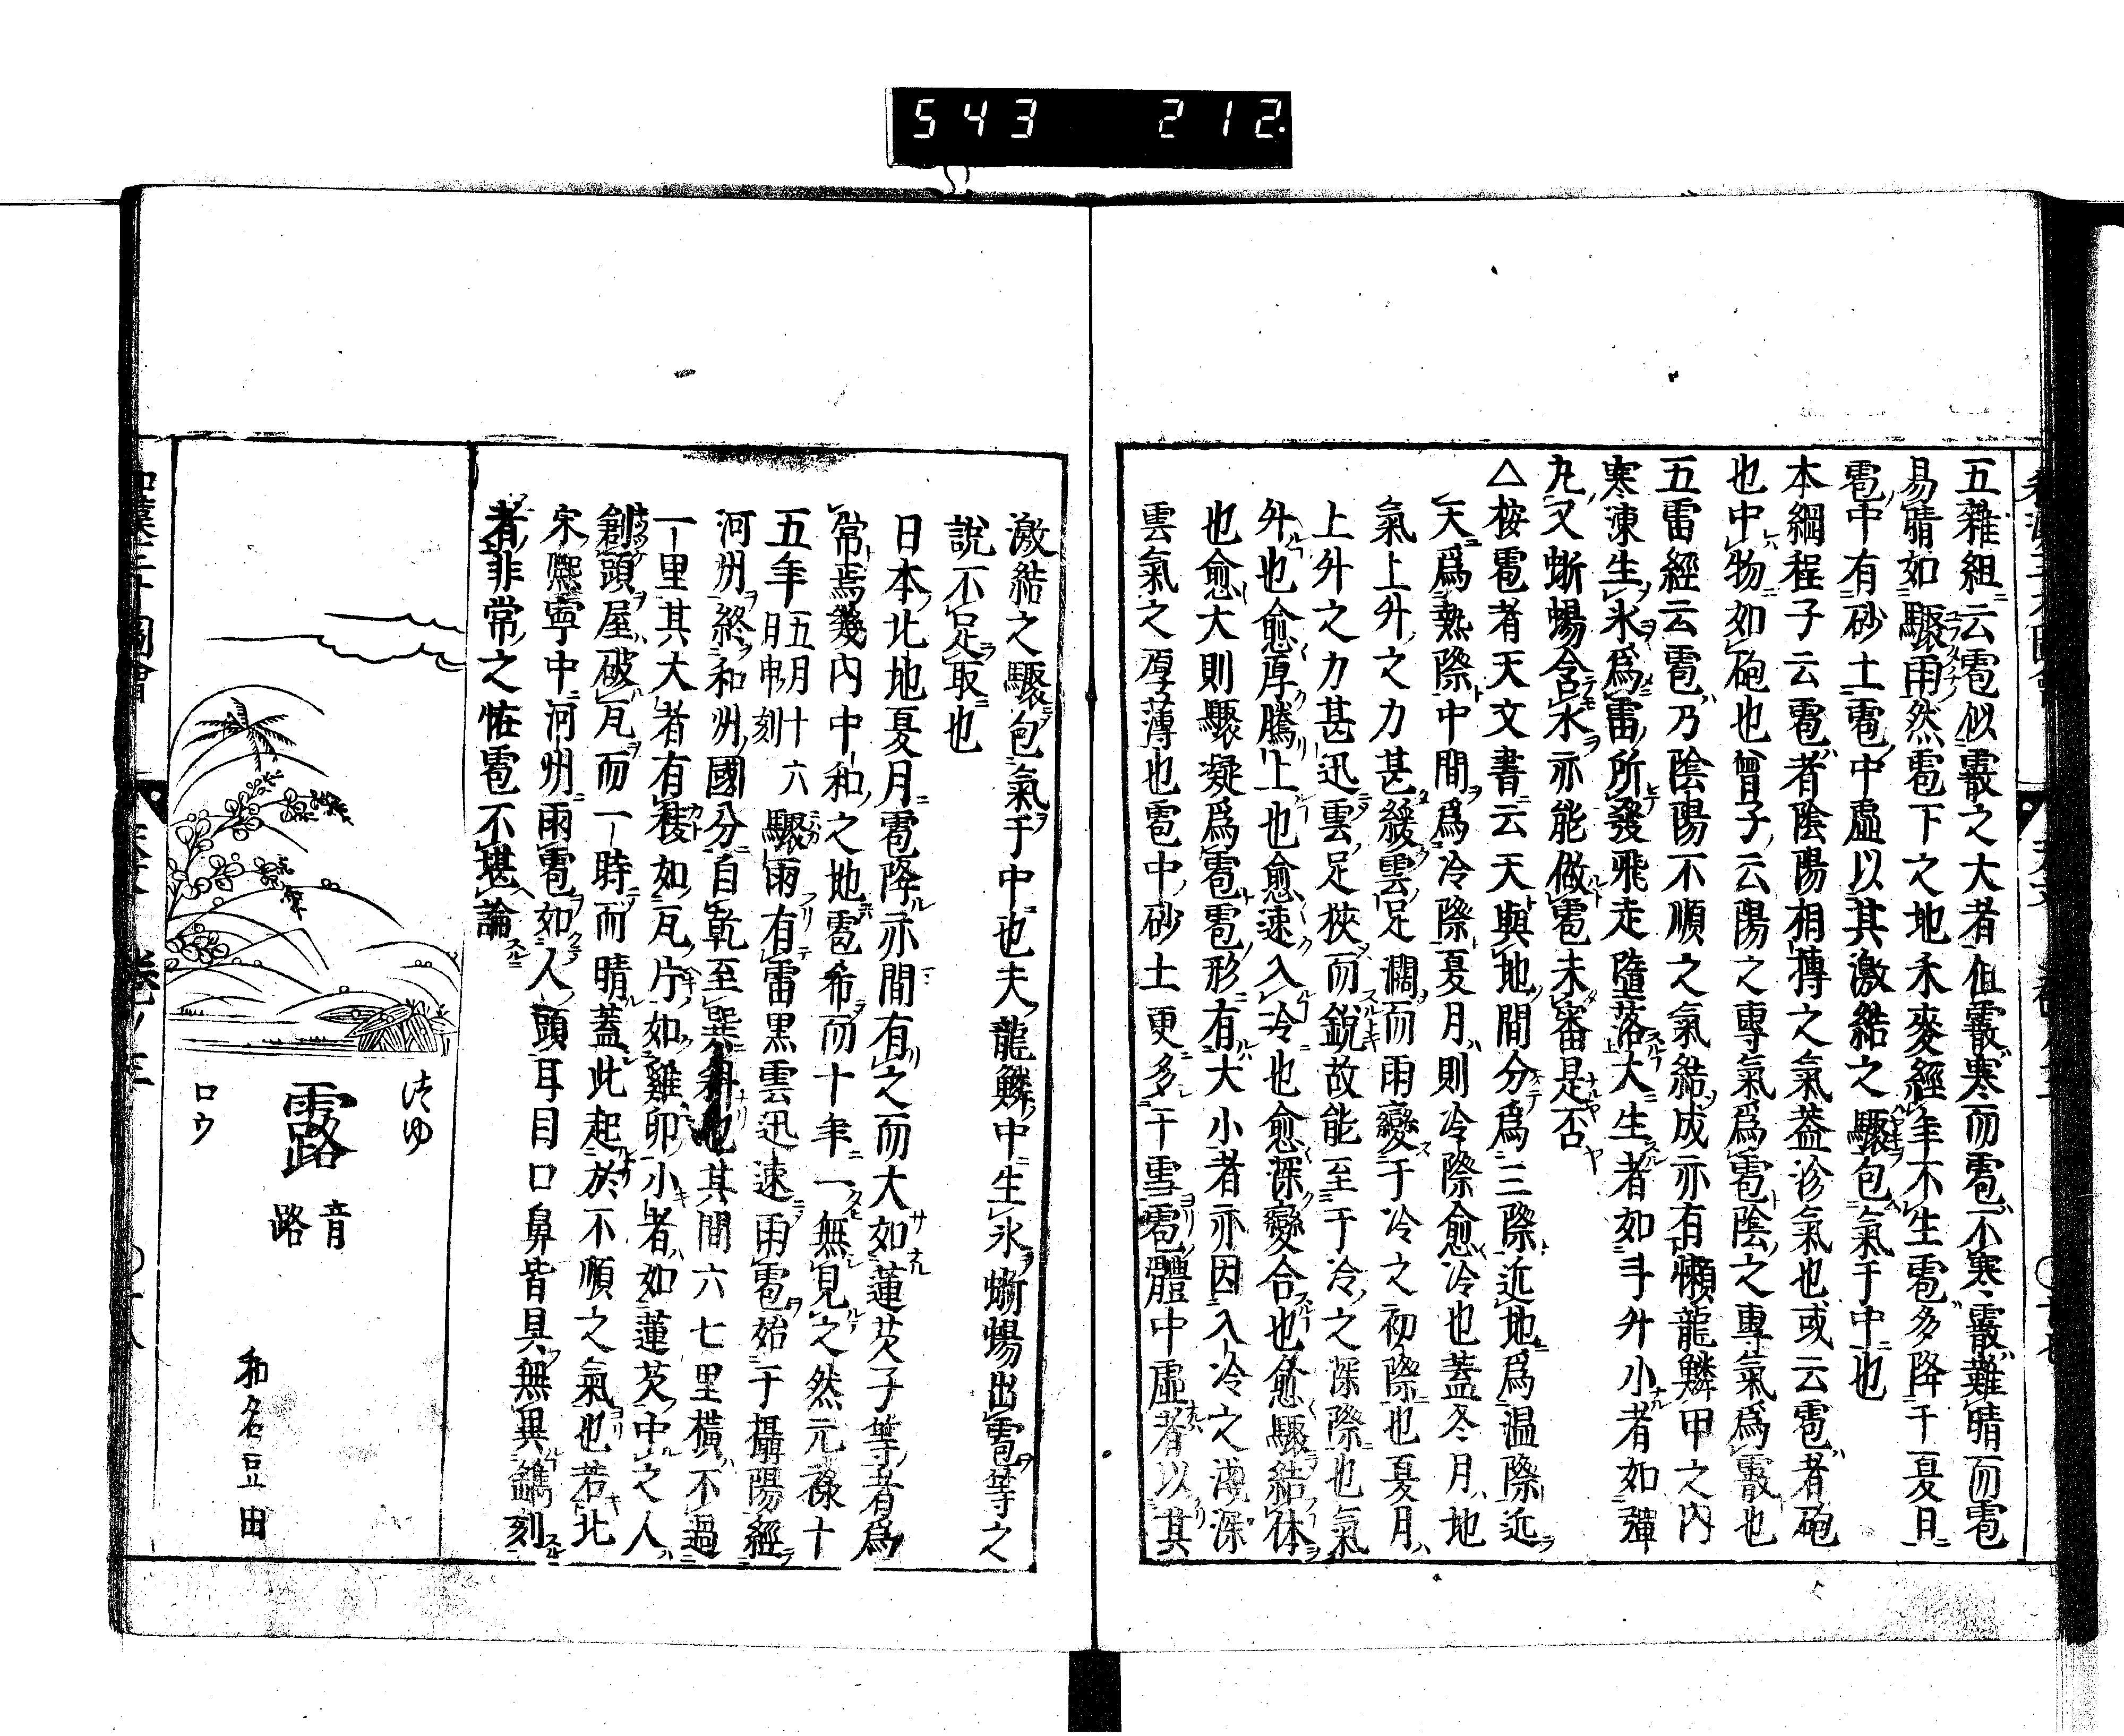 543 212.
五雜組云雹似霰之大者但霰寒而雹不寒霰難晴而雹
易晴如驟雨然雹下之地禾麥經年不生雹多降于夏月
雹中有砂土雹中虛以其激結之驟包氣于中也
本綱程子云雹者陰陽相搏之氣葢沴氣也或云雹者砲
也中物如砲也曾子云陽之專氣爲雹陰之專氣爲霰也
五雷經云雹乃陰陽不順之氣結成亦有懶龍鱗甲之内
寒凍生氷爲雷所發飛走墮落大生者如斗升小者如彈
丸又蜥蜴含水亦能做雹未審是否
△桉雹者天文書云天與地間分爲三際近地爲温際近
天爲熱際中間爲冷際夏月則冷際愈冷也蓋冬月地
氣上升之力甚緩雲足濶而雨變于冷之初際也夏月
上升之力甚迅雲足狹而銳故能至于冷之深際也氣
升也愈厚騰上也愈速入冷也愈深變合也愈驟結体
也愈大則驟凝爲雹雹形有大小者亦因入冷之淺深
雲氣之厚薄也雹中砂土更多于雪雹體中虛者以其
激結之驟包氣于中也夫龍鱗中生氷蜥蜴出雹等之
說不足取也
日本北地夏月雹降亦間有之而大如蓮芡子等者爲
常焉畿内中和之地雹希而十年一無見之然元祿十
五年五月十六日申刻驟雨有雷黒雲迅速雨雹始于攝陽經
河州終和州國分自乾至巽斜也其間六七里横不過
一里其大者有稜如瓦片如雞卵小者如蓮芡中之人
創頭屋破瓦而一時而晴蓋此起於不順之氣也若北
宋熈寧中河州雨雹如人頭耳目口鼻皆具無異鐫刻
者非常之恠雹不堪論
つゆ
露
音路
ロウ
和名豆由